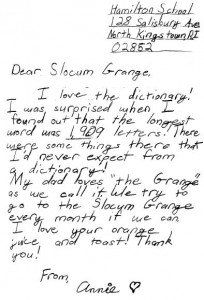 Hamilton School
128 Salisbury Ave
North Kingstown RI
02852
Dear Slocum Grange,
I love the dictionary!
I was surprised when I
found out that the longest
word was 1,909 letters! There
were some things there that
I'd never expect from
a dictionary!
My dad loves "the Grange"
as we call it. We try to
go to the Slocum Grange
every month if we can
I love your orange
juice and toast! Thank
you!
From,
Annie ♡